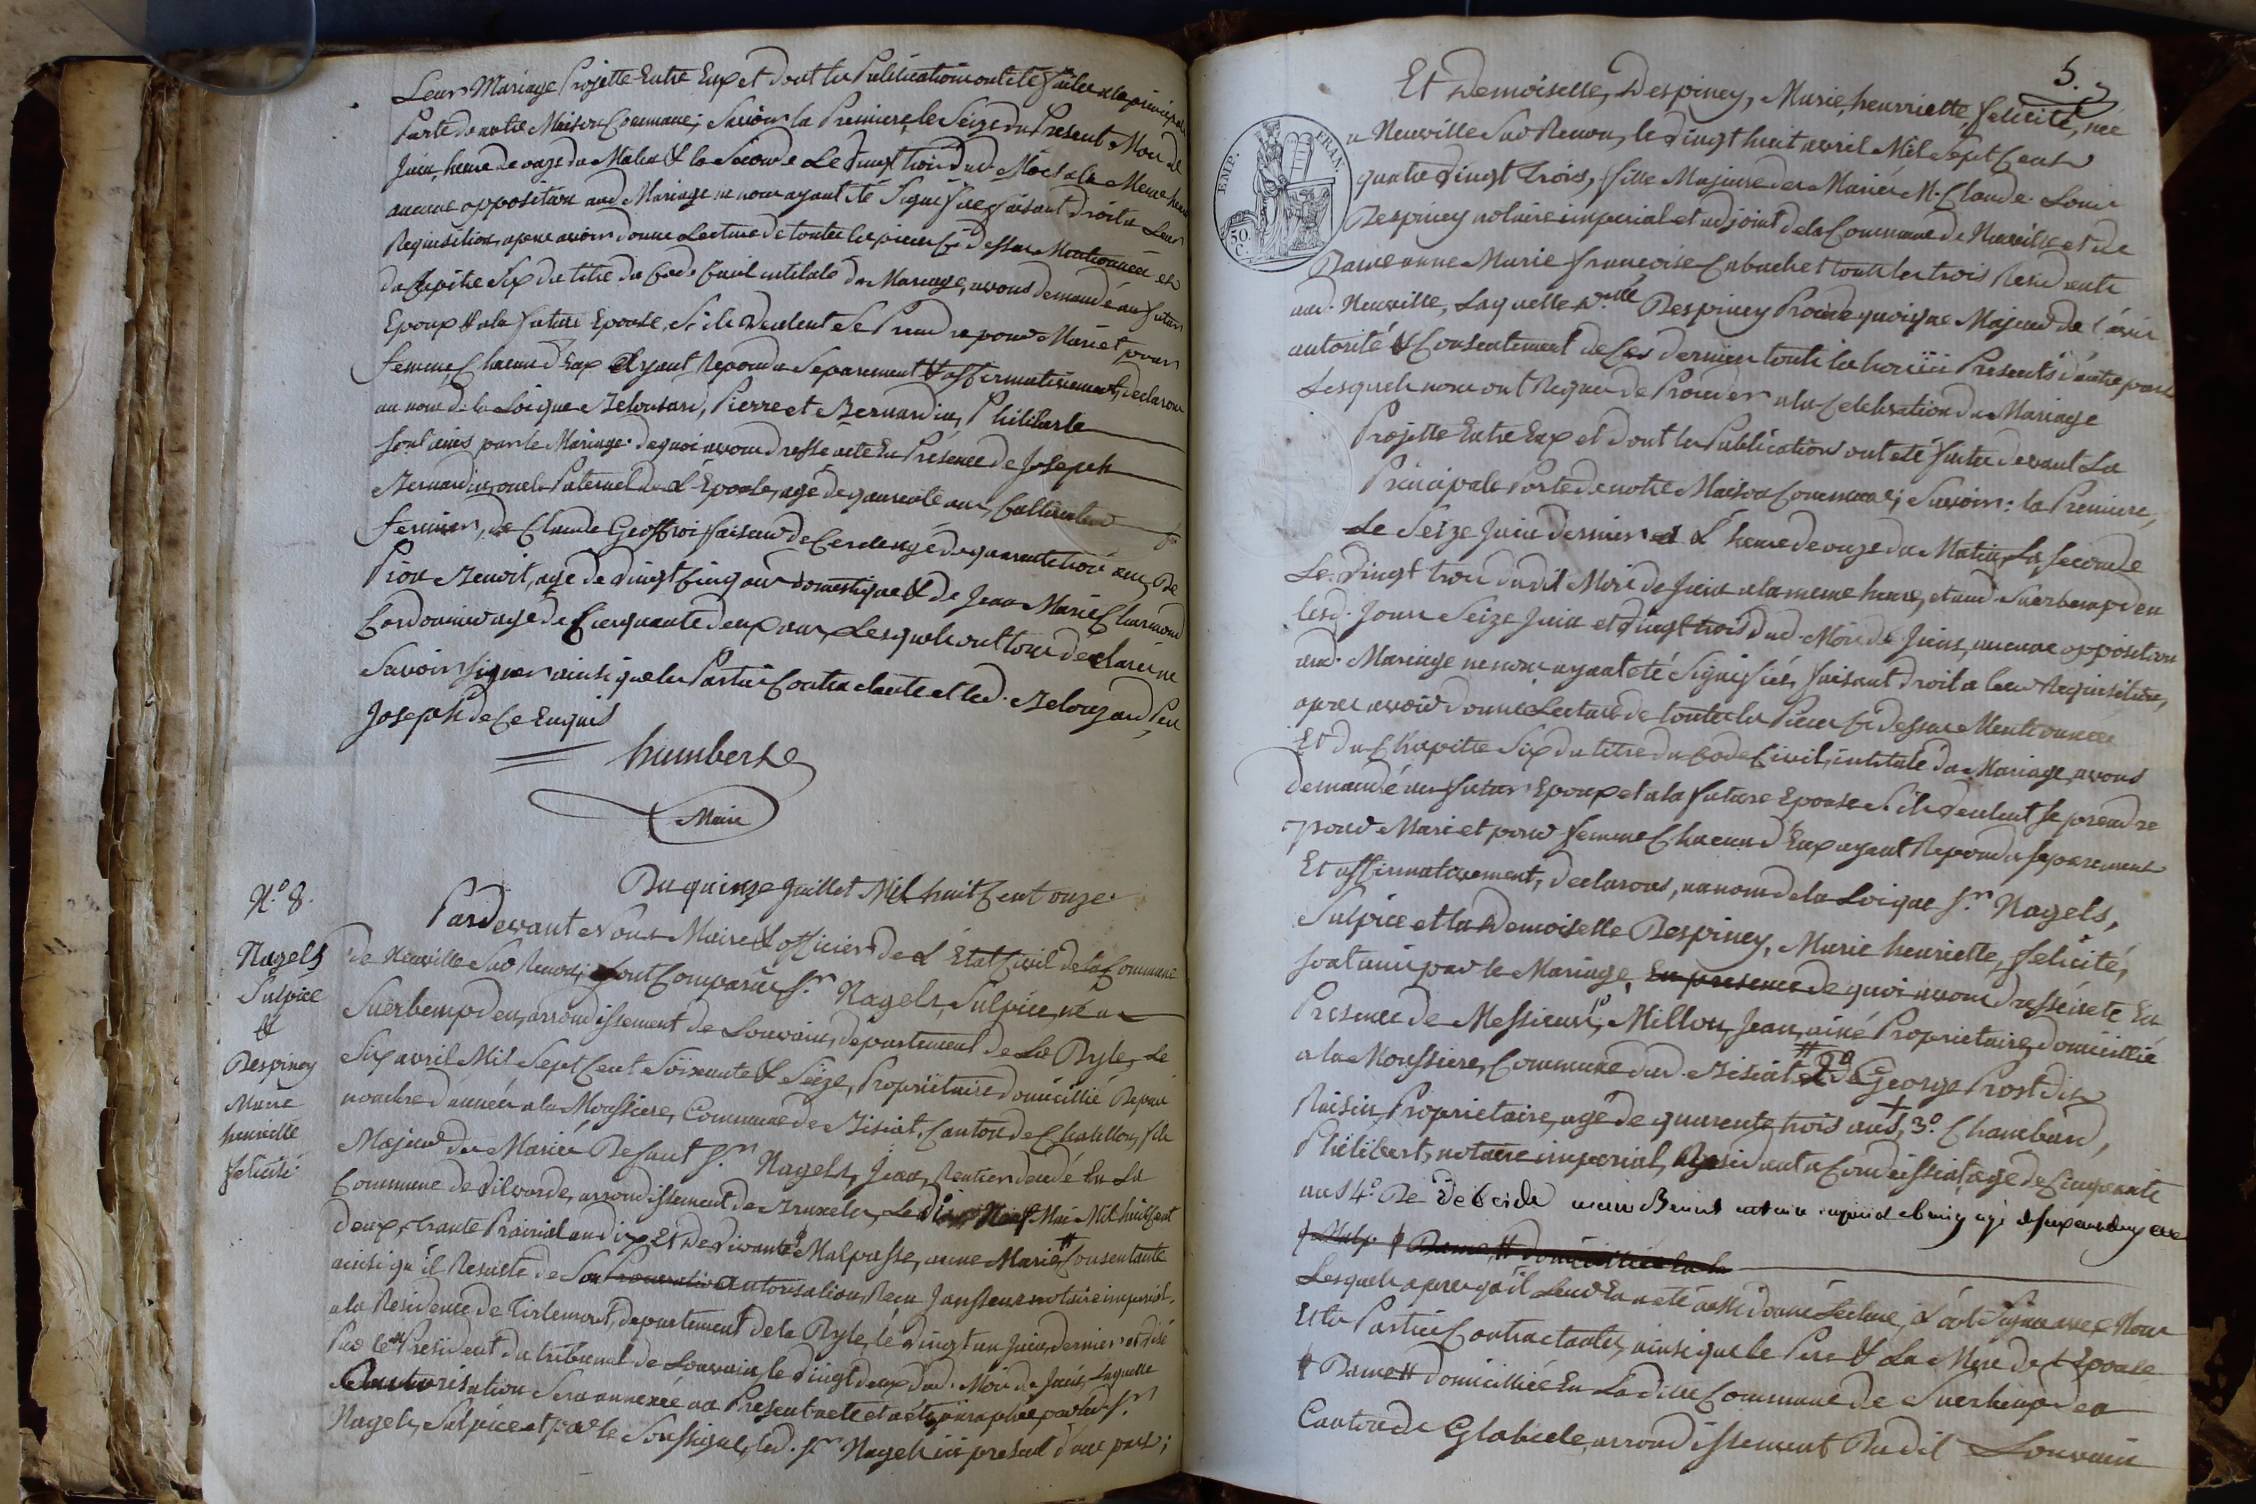 Leurs Mariage Projetté Entre Eux et dont les Publications ont été faites a la principale
Porte de notre Maison Commune; Savoir la Premiere, le Seize du Present Mois de
Juin, heure de onze du Matin & la Seconde Le Vingt trois dud. Mois a la Meme heure
aucune opposition aud. Mariage ne nous ayant été Signifiée, faisant droit a Leur
Requisition, apres avoir donné Lecture de toutes les pieces Ci dessus Mentionnées et
du Chapitre Six du titre du Code Civil intitulé du Mariage, avons demandé au futur
Epoux & a la future Epouse, S'ils Veulent Se Prendre pour Mari et pour
femme, Chacun d'Eux Ayant Repondu Separement & affirmativement, declarons
au nom de la Loi que Belouzard, Pierre et Bernardin, Philiberte
Sont unis par le Mariage. de quoi avons dressé acte En Présence de Joseph
Bernardin, oncle Paternel de L'Epouse, agé de quarante ans, Cultivateur
fermier, de Claude Geoffroi faiseur de Cercles agé de quarante trois ans, De
Pion Benoit, agé de Vingt Cinq ans domestique & de Jean Marie Clermond
Cordonnier agé de Cinquante deux ans, Lesquels ont tous declaré ne
Savoir Signer ainsi que les Parties Contractantes et led. Belouzard Pere
Joseph de Ce Enquis
humbert
Maire
N.º 8.
Nagels
Sulpice
&
Despiney
Marie
henriette
felicité.
Du quinze Juillet Mil huit Cent onze.
Pardevant Nous Maire & officier de L'Etat Civil de la Commune
de Neuville Sur Renon, Sont Comparus S.r Nagels, Sulpice, né a
Suerbempden, arrondissement de Louvain, departement de La Dyle, Le
Six avril Mil Sept Cent Soixante & Seize, Propriétaire domicillié Depuis
nombre d'années a la Moussiere, Commune de Biziat, Canton de Chatillon, fils
Majeur des Mariés Defunt S.r Nagels, Jean, Rentier decedé En La
Commune de Vilvorde, arrondissement de Bruxelles, Le Dix Neuf Mai Mil huit Cent
deux, trente Prairial an dix Et De Vivante Malpasse, anne Marie, Consentante
ainsi qu'il Resulte de Son Procuration autorisation, Recu Janssens notaire imperial,
a la Residence de Tirlemont, departement de la Dyle, le Vingt un Juin dernier et visé
Par le President du tribunal de Louvain, le Vingt deux dud. Mois de Juin, Laquelle
autorisation Sera annexée au Present acte et a été paraphée par led. S.r
Nagels, Sulpice et par le Soussigné, led. S.r Nagels ici present d'une part;
5.
EMP. FRAN.
50. C.
Et Demoiselle, Despiney, Marie, henriette, felicité, née
a Neuville Sur Renon, le Vingt huit avril Mil Sept Cent
quatre Vingt Trois, fille Majeure des Mariés M. Claude Louis
Despiney notaire imperial et adjoint de la Commune de Neuville et de
Dame anne Marie francoise Cabuchet tous les trois Residents
aud. Neuville, Laquelle D.elle Despiney Procede quoique Majeure de l'avis
autorité & Consentement de Ces derniers tous les trois ici Presents d'autre part
Lesquels nous ont Requis de Proceder a la Celebration du Mariage
Projetté Entre Eux et dont les Publications ont été faites devant La
Principale Porte de notre Maison Commune; Savoir: la Premiere,
Le Seize Juin dernier a L'heure de onze du Matin, La Seconde
Le Vingt trois dudit Mois de Juin a la meme heure, et aud. Suerbempden
lesd. Jours Seize Juin et Vingt trois dud. Mois de Juin, aucune opposition
aud. Mariage ne nous ayant été Signifiée, faisant droit a leur Requisition,
apres avoir donné Lecture de toutes les Pieces Ci dessus Mentionnées
Et du Chapitre Six du titre du Code Civil, intitulé du Mariage, avons
demandé au futur Epoux et a la future Epouse S'ils Veulent Se prendre
pour Mari et pour femme Chacun d'Eux ayant Repondu Separement
Et affirmativement, declarons, au nom de la Loi que S.r Nagels,
Sulpice et la Demoiselle Despiney, Marie henriette, felicité,
Sont unis par le Mariage, En presence de quoi avons dressé acte En
Presence de Messieurs, 1º Millon, Jean, ainé Proprietaire, domicillié
a la Moussiere, Commune dud. Biziat, 2º De George Prost dit
Raisin, Proprietaire, agé de quarente trois ans, 3º. Chamband,
Philibert, notaire imperial, Residant a Condeissiat, agé de Cinquante
ans 4º. De
Dame domicilliée En la
Lesquels apres qu'il Leur En a été aussi donné Lecture, ont Signé avec Nous
Et les Parties Contractantes, ainsi que le Pere & La Mere de L'Epouse
Dame domicilliée En Ladite Commune de Suerbempden
Canton de Glabeek, arrondissement Dudit Louvain